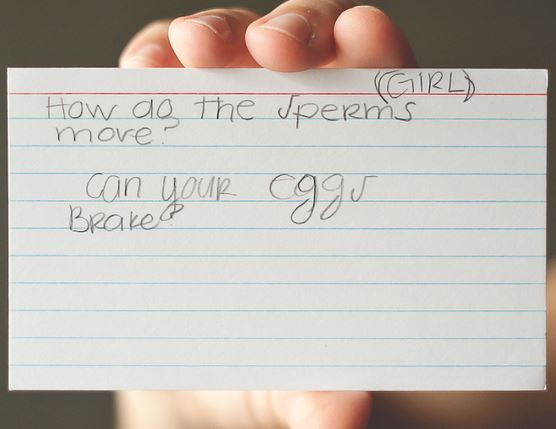 (GIRL)
How do the sperms
move?
can your eggs
Brake?